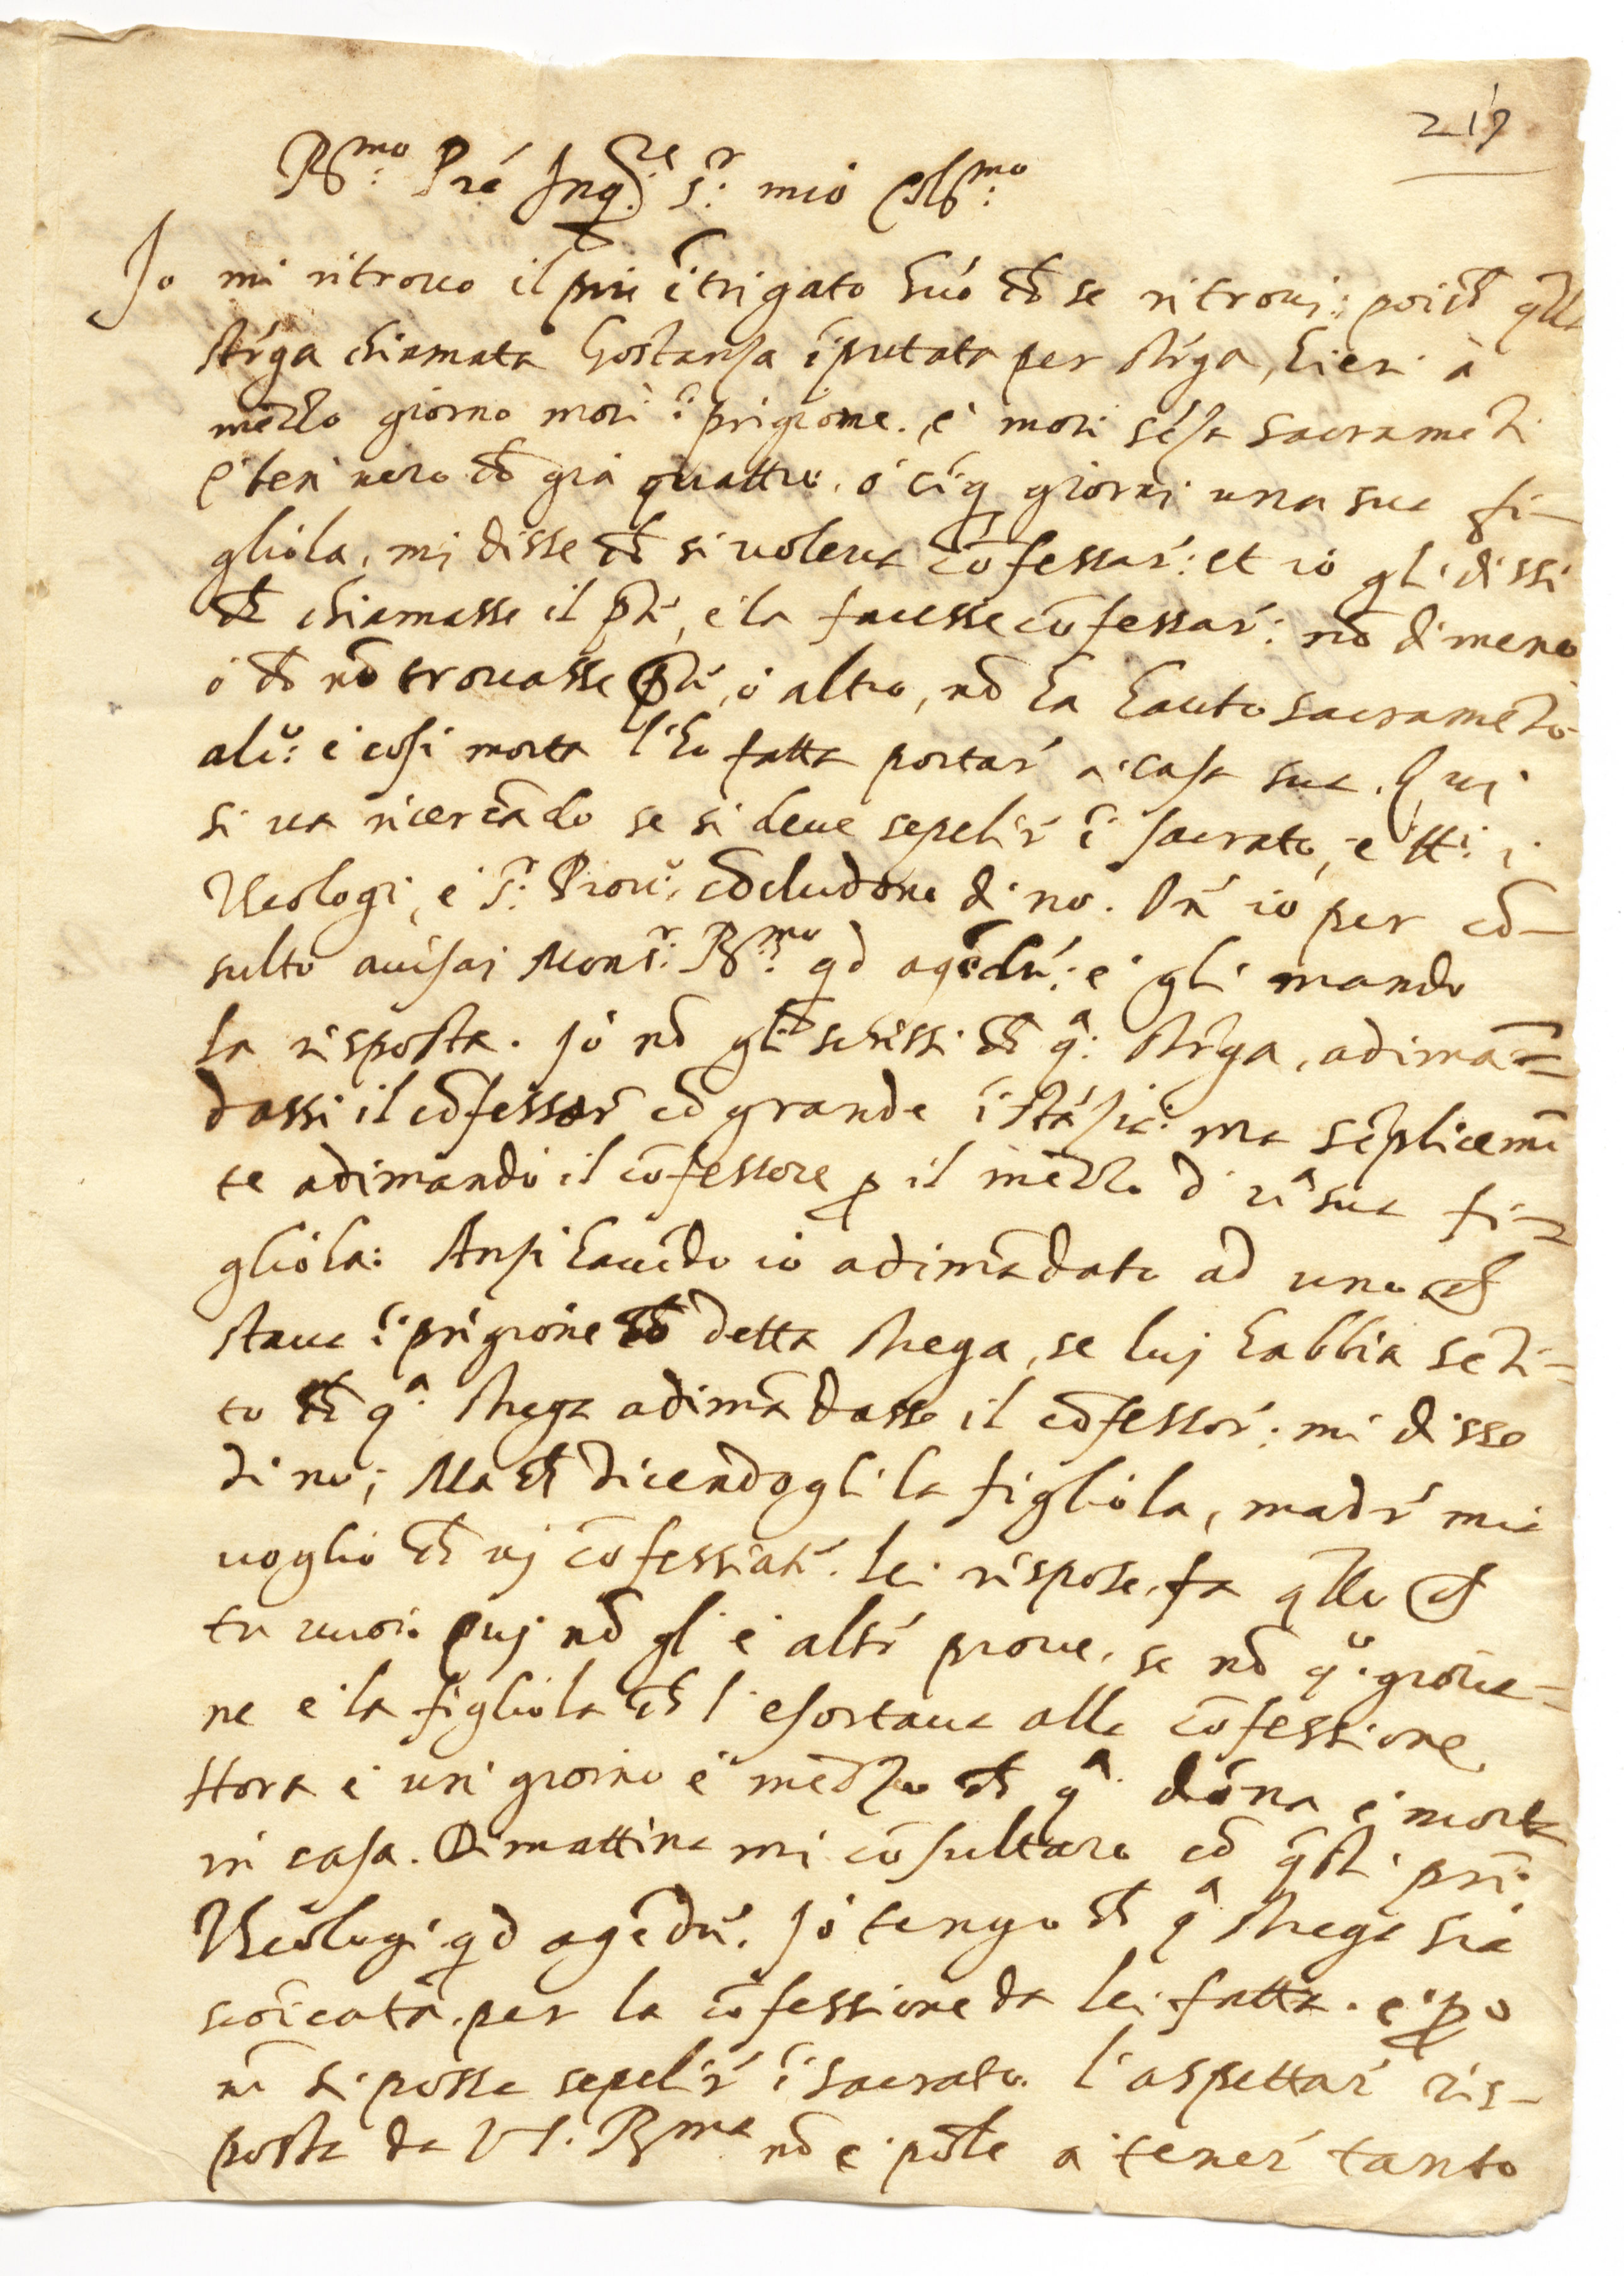 217
R.mo Pré Inq.re S.r mio Col.mo
Io mi ritrouo il piu ĩtrigato huõ ch̃ se ritroui: poich̃ q̃lla
strĩga chiamata Gostanza ĩputata per strĩga, hieri à
mezzo giorno mori ĩ prigione. è mori sẽza sacramẽti
è ben uero ch̃ già quattro, ò cĩq̃ giorni una sua fi-
gliola, mi disse ch̃ si uoleua cõfessar̃: et io gli dissi
ch̃ chiamasse il p̃te, e la facesse cõfessar̃: nõ dimeno
ò ch̃ nõ trouasse p̃te, ò altro, nõ ha hauuto sacramẽto
alc.o: e cosi morta l'ho fatta portar̃ a casa sua. Qui
si ua ricercãdo se si deue sepelir̃ ĩ sacrato, e tt.i i
Theologi, e S.r Prou.o cõcludono di no. Oñ io per cõ-
sulto auisai Mons.r R.mo qd agẽdũ: e gli mando
la risposta. Io nõ gli scrissi ch̃ q.a strĩga, adimã=
dassi il cõfessor̃ cõ grande ĩstãzia: ma sẽplicemẽ
te adimandò il cõfessore p il mezzo d' ũa sua fi=
gliola: Anzi hauẽdo io adimãdato ad uno ch̃
staua ĩ prigione cõ detta strega, se lui habbia sẽti=
to ch̃ q.a strega adimãdasse il cõfessor̃: mi disse
di no; Ma ch̃ dicendogli la figliola, madr̃ mia
uoglio ch̃ ui cõfessiate. lei rispose, fa q̃llo ch̃
tu uuoi. Qui nõ gl'è altr̃ proue, se nõ q.o gioua=
ne e la figliola ch̃ l'esortaua alla cõfessione.
Hora è un giorno e mezzo ch̃ q.a dõna è morta
in casa. Dimattina mi cõsultaro cõ q̃sti pri.
Theologi qd agẽdũ. Io tengo ch̃ q.a strega sia
scõicata per la cõfessione da lei fatta. e pò
nõ si possa sepelir̃ ĩ sacrato. l'aspettar̃ ris-
posta da V.S. R.ma nõ è põle a tener̃ tanto